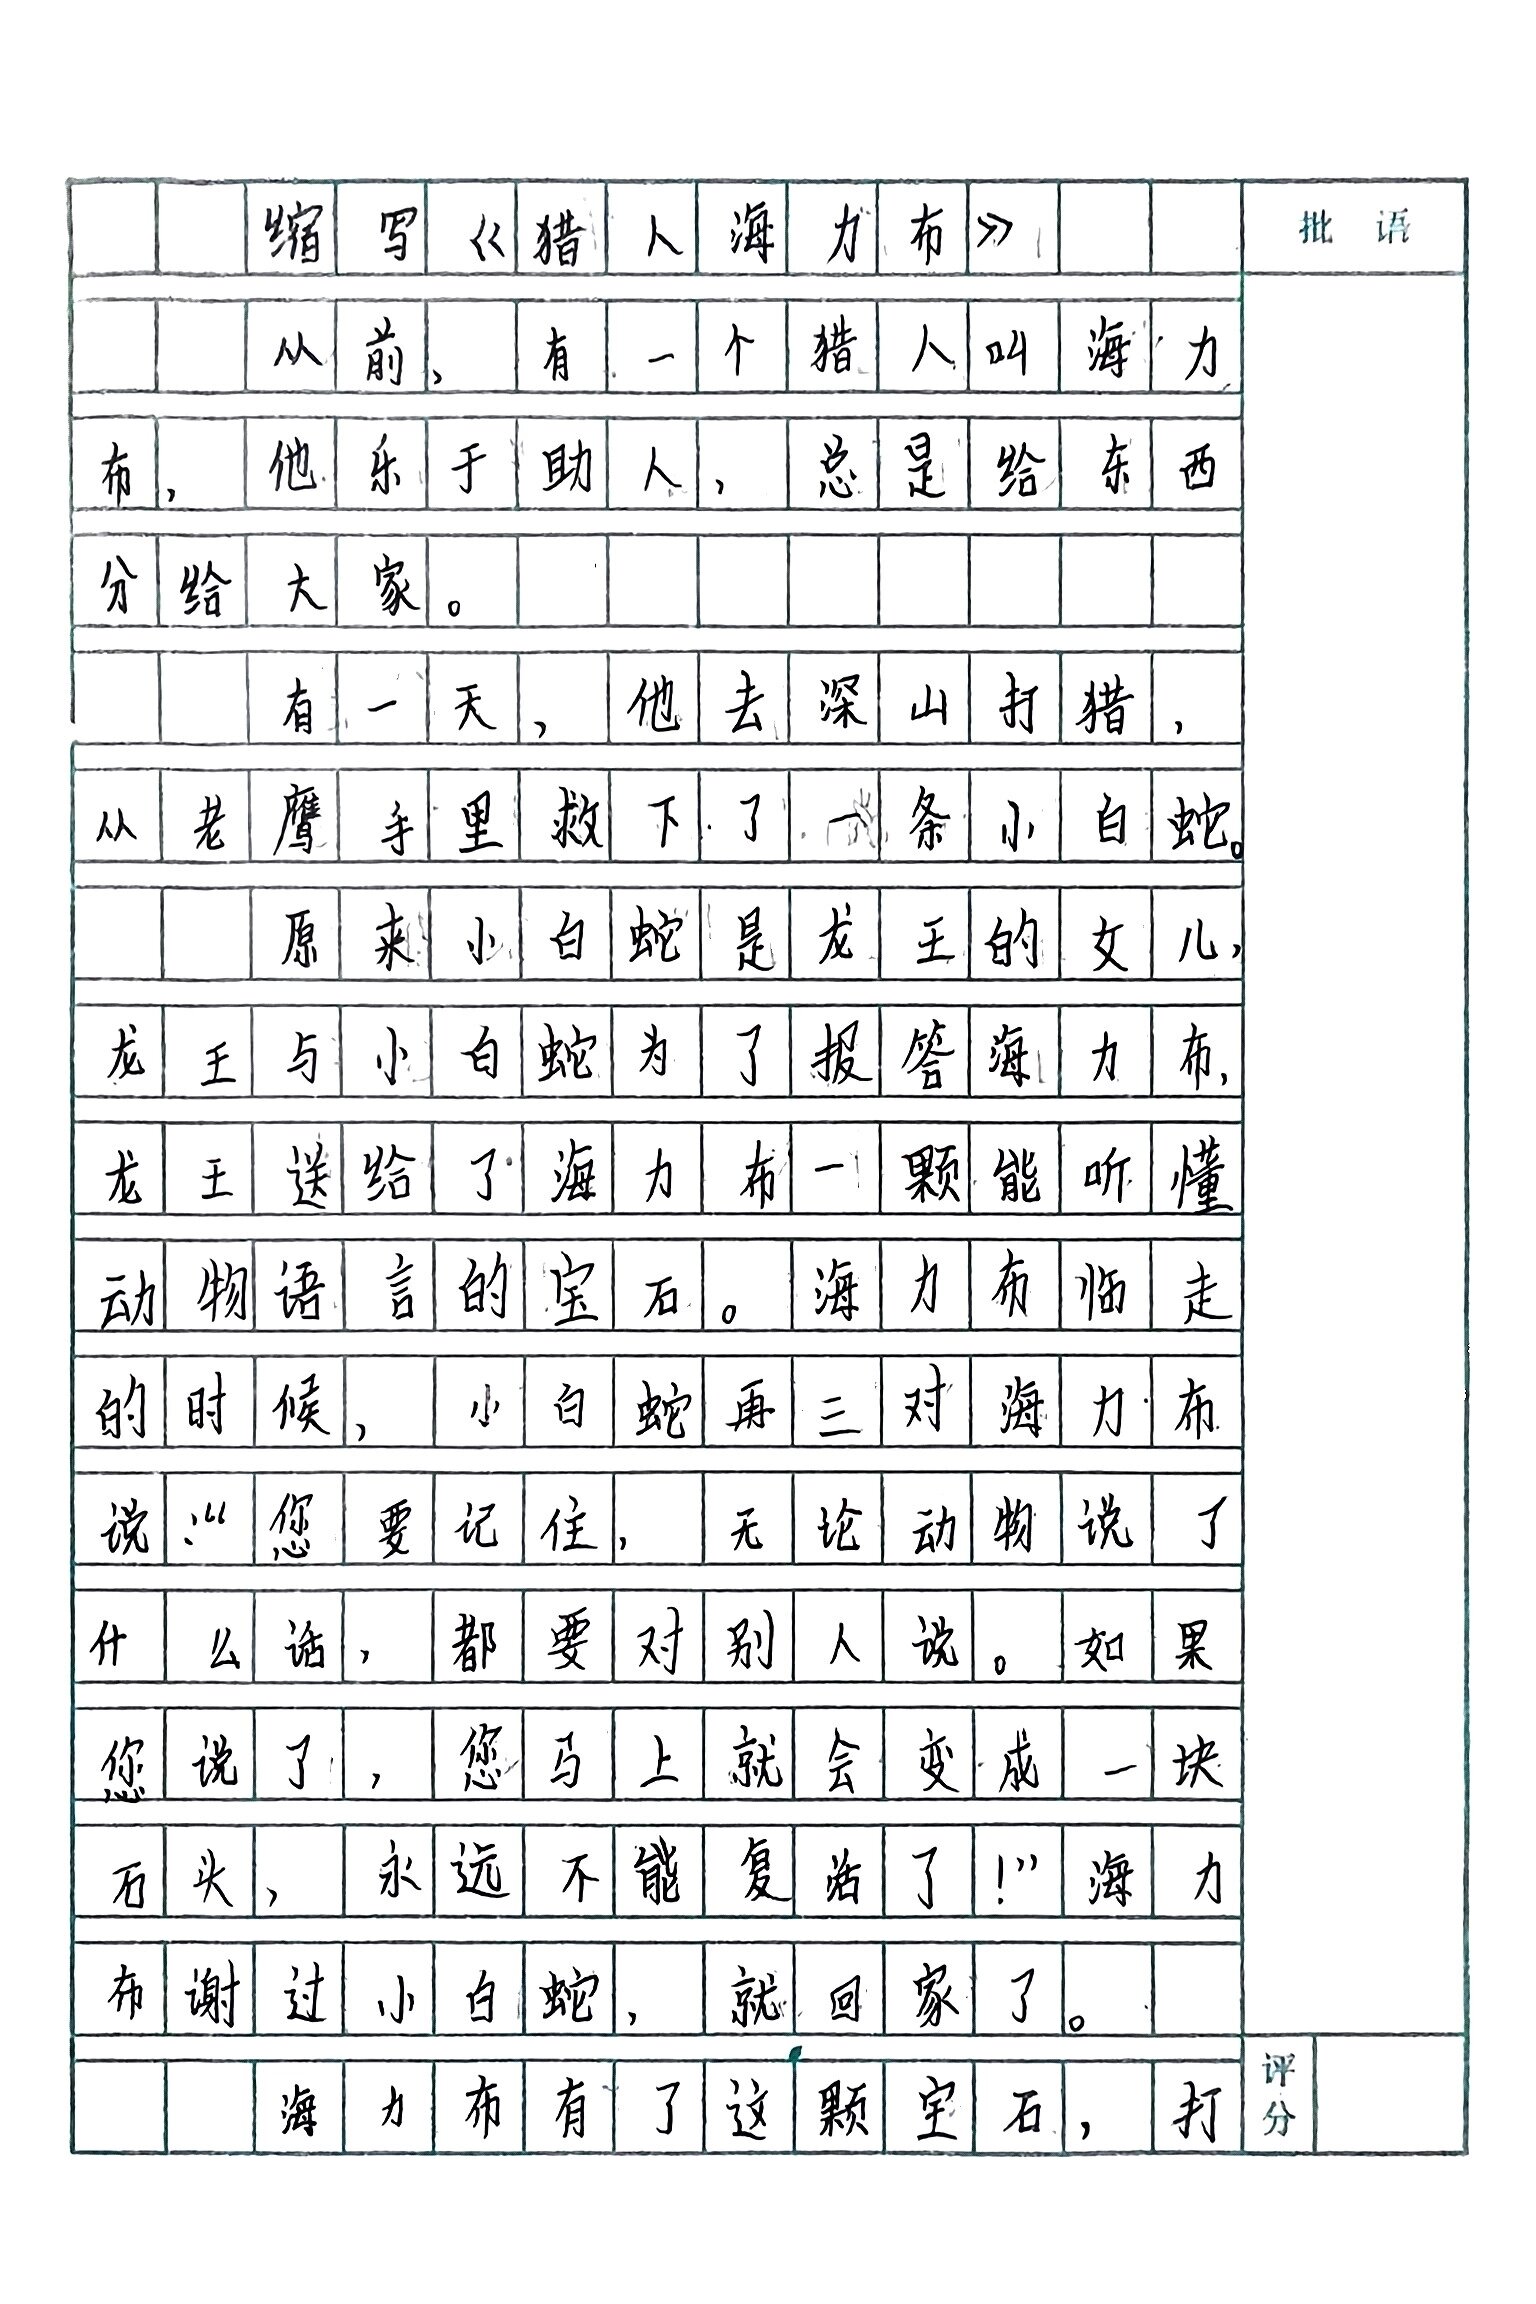 缩写《猎人海力布》
批语
从前，有一个猎人叫海力
布，他乐于助人，总是给东西
分给大家。
有一天，他去深山打猎，
从老鹰手里救下了一条小白蛇。
原来小白蛇是龙王的女儿，
龙王与小白蛇为了报答海力布，
龙王送给了海力布一颗能听懂
动物语言的宝石。海力布临走
的时候，小白蛇再三对海力布
说：“您要记住，无论动物说了
什么话，都要对别人说。如果
您说了，您马上就会变成一块
石头，永远不能复活了！”海力
布谢过小白蛇，就回家了。
海力布有了这颗宝石，打
评分